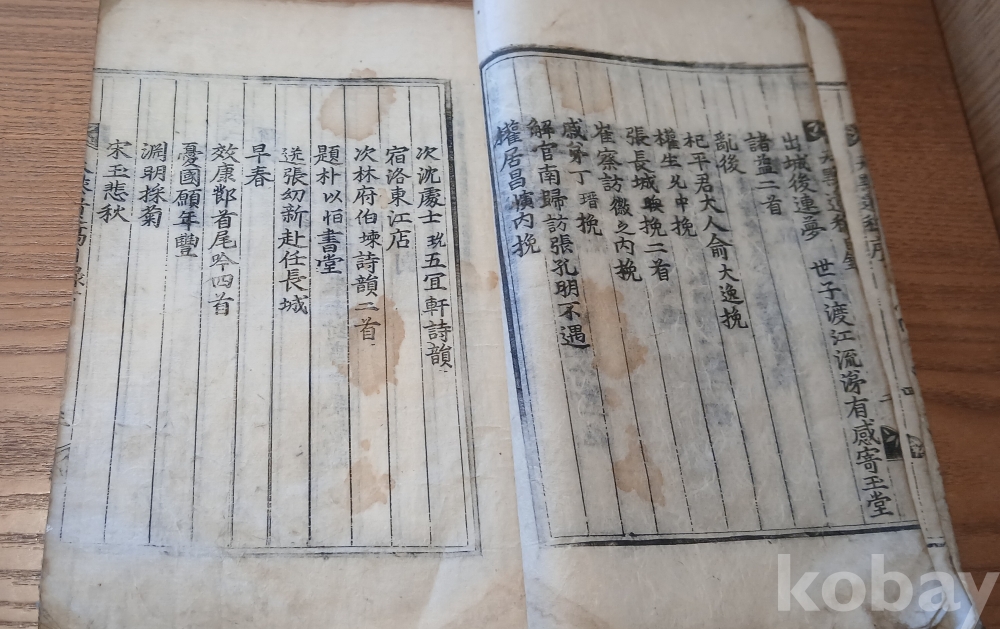 出城後連夢 世子渡江流涕有感寄玉堂
諸盆二首
亂後
杞平君大人俞大逸挽
權生允中挽
張長城㬇挽二首
崔察訪徵之內挽
戚弟丁瑨挽
解官南歸訪張孔明不遇
權居昌㶂內挽
次沈處士玧五宜軒詩韻
宿洛東江店
次林府伯堜詩韻二首
題朴以恒書堂
送張幼新赴任長城
早春
效康節首尾吟四首
憂國願年豐
淵明採菊
宋玉悲秋
kobay